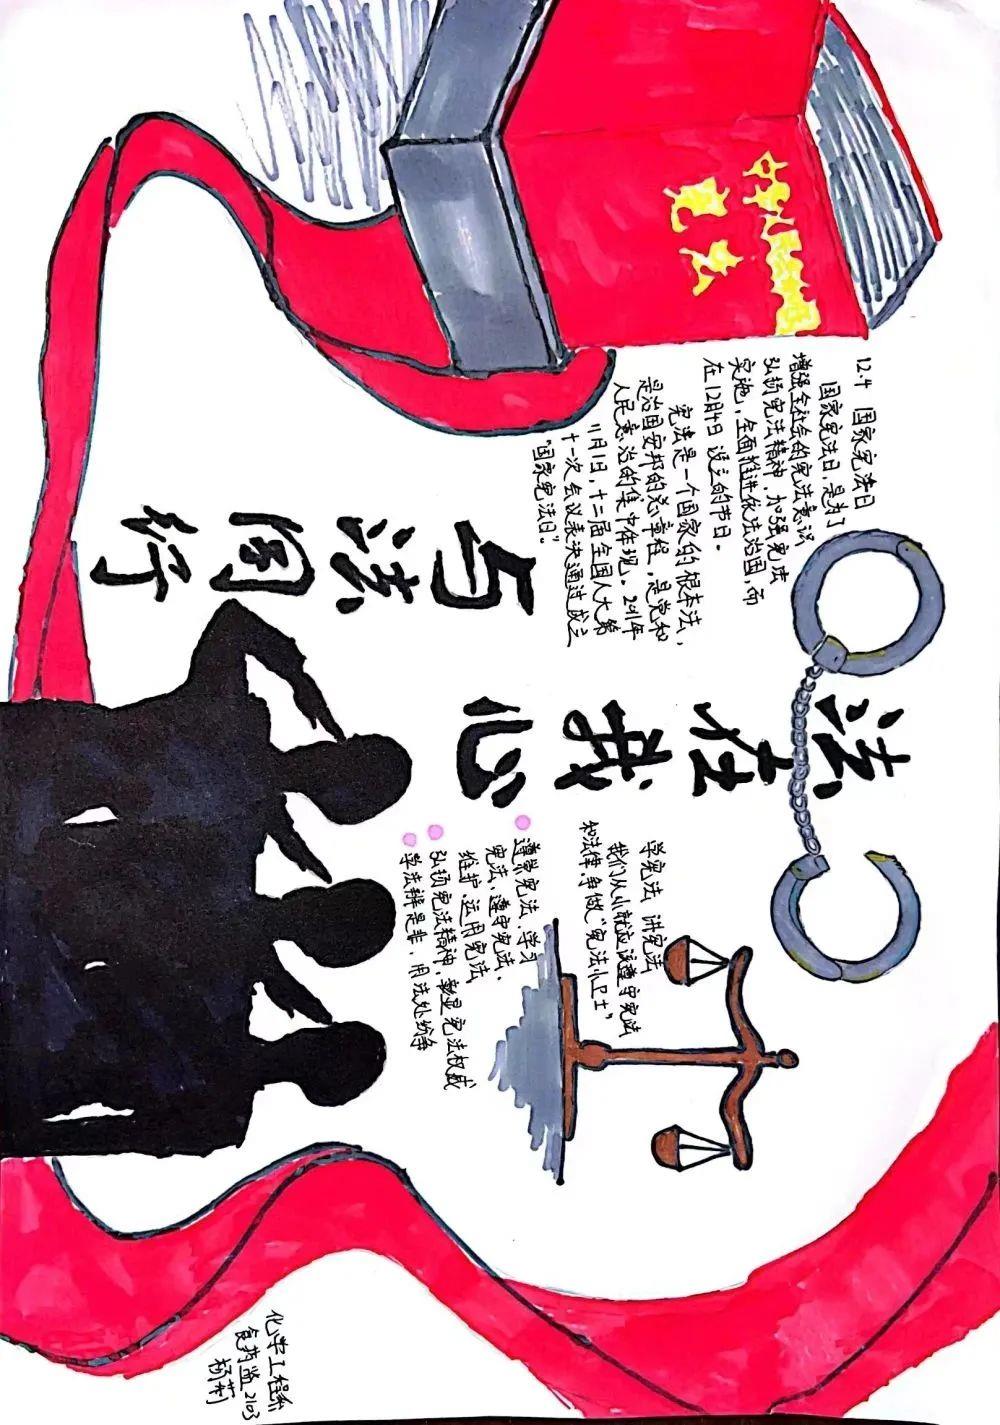 中华人民共和国
宪法
12.4 国家宪法日
国家宪法日,是为了
增强全社会的宪法意识
弘扬宪法精神,加强宪法
实施,全面推进依法治国,而
在12月4日设立的节日。
宪法是一个国家的根本法,
是治国安邦的总章程,是党和
人民意志的集中体现。
11月1日,十二届全国人大第
十一次会议表决通过成立
"国家宪法日。"
法在我心
与法同行
学宪法 讲宪法
我们从小就应该遵守宪法
和法律,争做"宪法小卫士"
遵崇宪法、学习
宪法、遵守宪法、
维护、运用宪法
弘扬宪法精神,彰显宪法权威
学法辨是非,用法处纷争
化学工程系
食药监2103
杨莉